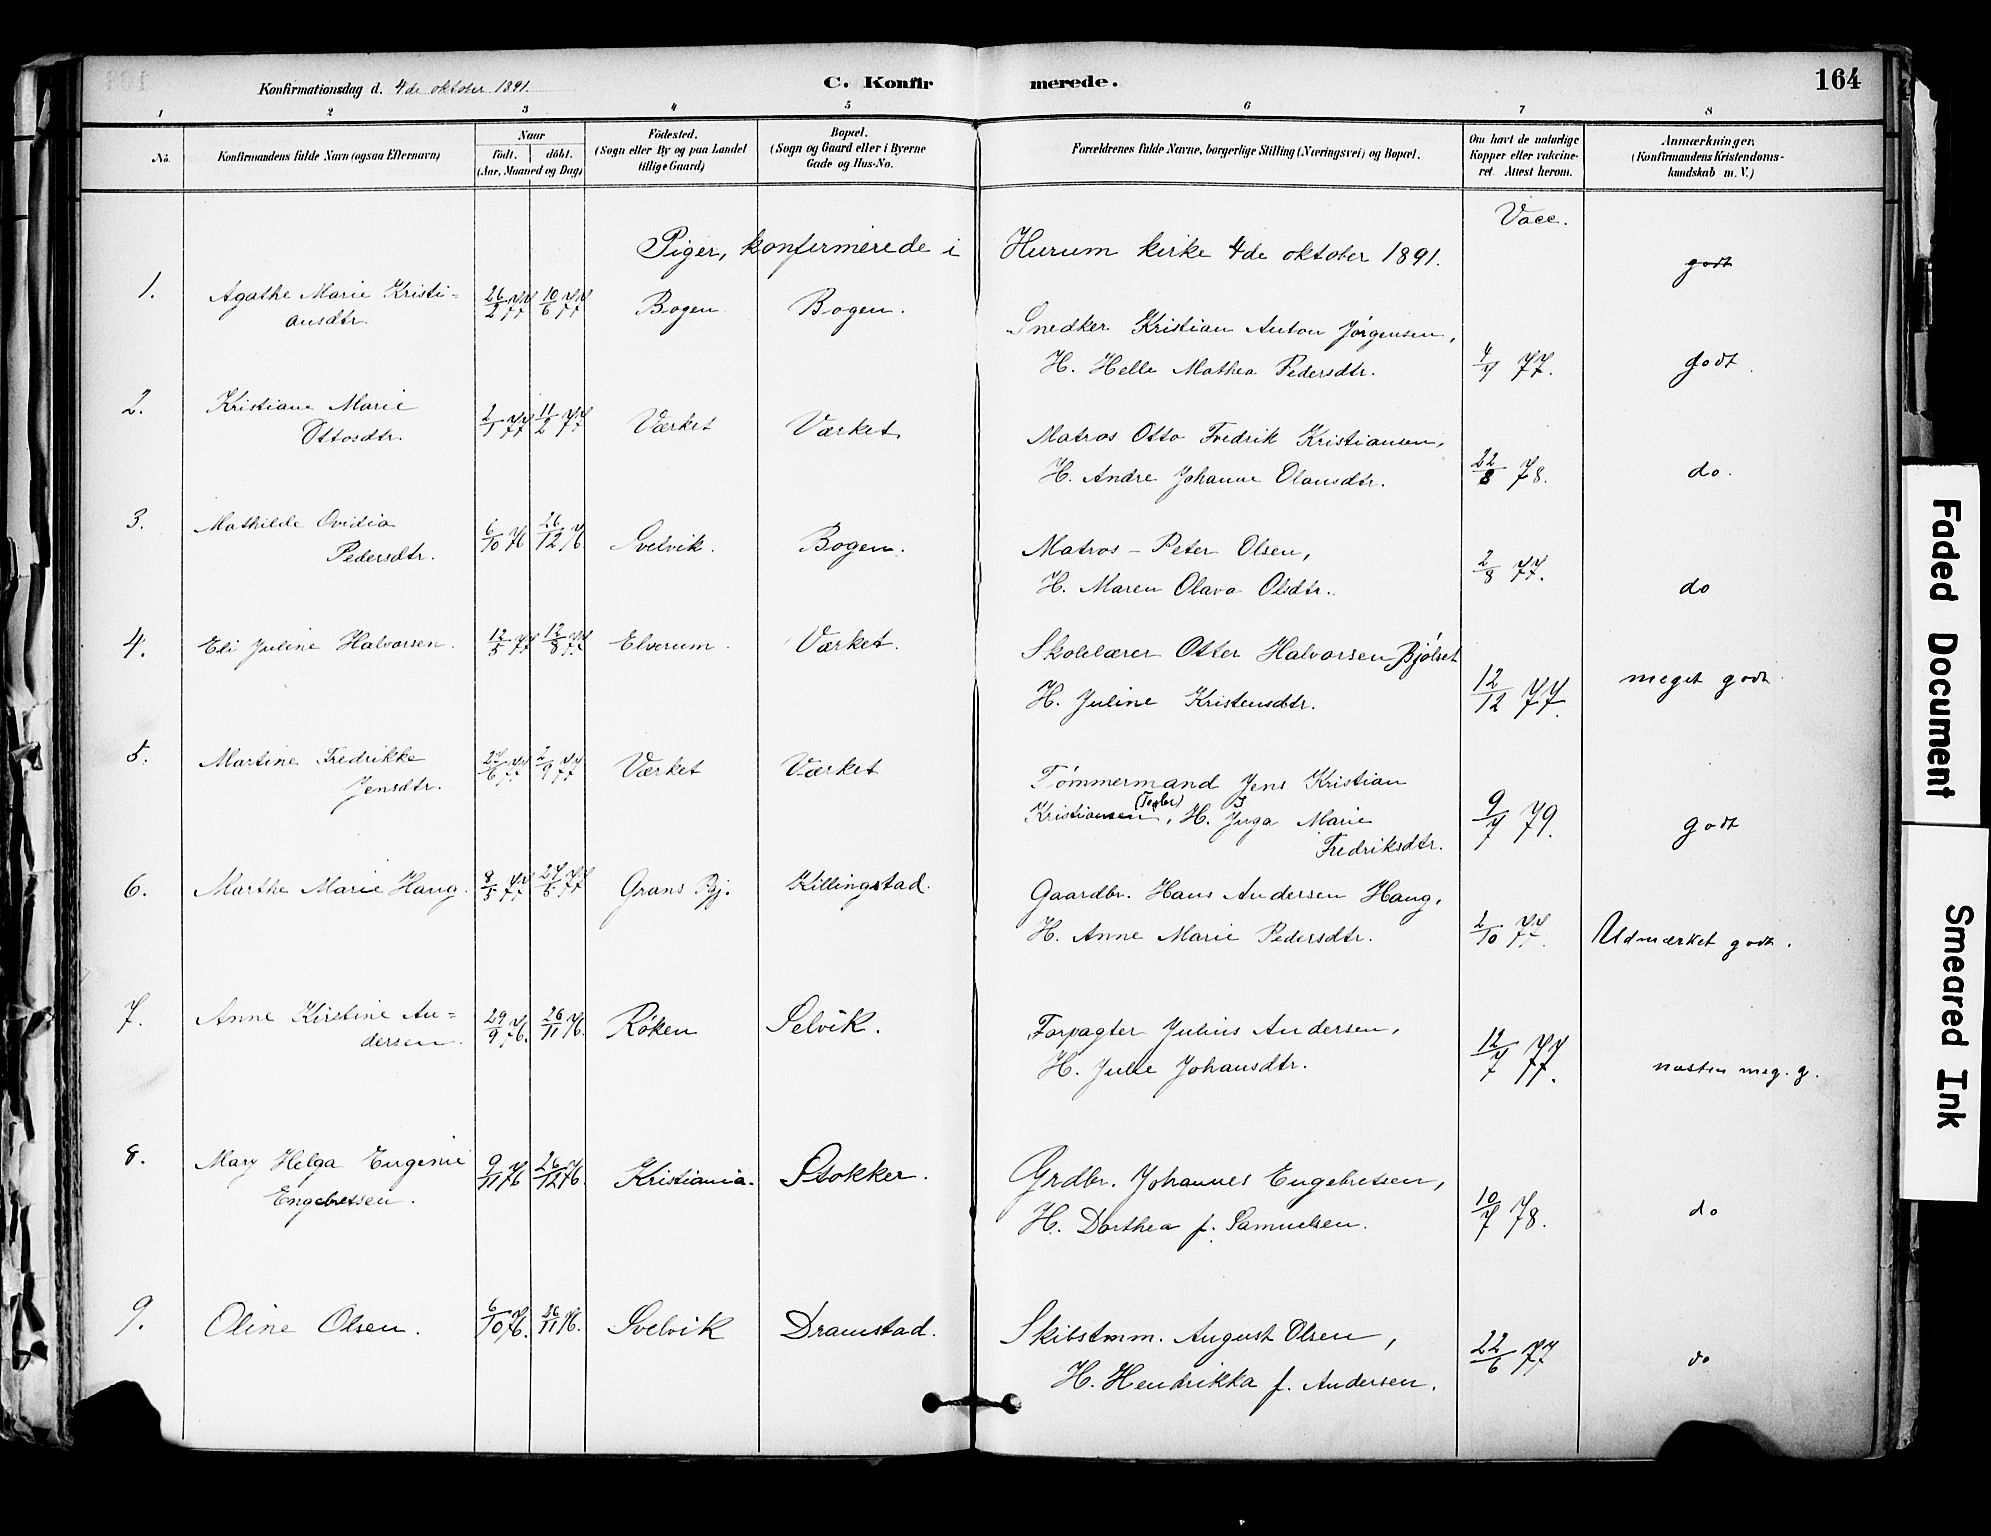 Konfirmationsdag d. 4de oktober 1891.
C. Konfirmerede.
164
1 2 3 4 5 6 7 8
No.
Konfirmandens fulde Navn (ogsaa Efternavn)
Naar
födt. döbt.
(Aar, Maaned og Dag)
Födested.
(Sogn eller By og paa Landet
tillige Gaard)
Bopæl.
(Sogn og Gaard eller i Byerne
Gade og Hus-No.
Forældrenes fulde Navne, borgerlige Stilling (Næringsvei) og Bopæl.
Om havt de naturlige
Kopper eller vakcine-
ret. Attest herom.
Anmærkninger.
(Konfirmandens Kristendoms-
kundskab m. V.)
Vacc.
Piger, konfirmerede i Hurum kirke 4de oktober 1891.
godt
1. Agathe Marie Kristi-
ansdtr.
26/2 77 10/6 77 Bogen Bogen.
Snedker Kristian Anton Jørgensen,
H. Helle Mathea Pedersdtr. 4/7 77. godt.
2. Kristiane Marie
Ottosdtr.
2/1 77 11/2 77 Værket Værket
Matros Otto Fredrik Kristiansen,
H. Andre Johanne Olausdtr. 22/8 78. do.
3. Mathilde Ovidia
Pedersdtr.
6/10 76 26/12 76. Svelvik. Bogen.
Matros - Peter Olsen,
H. Maren Olava Olsdtr. 2/8 77. do
4. Eli Juline Halvorsen. 12/5 77 12/8 77. Elverum. Værket.
Skolelærer Otter Halvorsen Bjölset
H. Juline Kristensdtr. 12/12 77. meget godt.
5. Martine Fredrikke
Jensdtr.
27/6 77. 2/9 77 Værket Værket
Tömmermand Jens Kristian
Kristiansen, H. Inga Marie
Fredriksdtr. 9/7 79. godt
6. Marthe Marie Haug. 8/5 77 27/5 77 Grans Pgj. Killingstad.
Gaardbr. Hans Andersen Haug,
H. Anne Marie Pedersdtr. 2/10 77. Udmærket godt.
7. Anne Kirstine An-
dersen.
29/9 76. 26/11 76. Røken Selvik.
Forpagter Julius Andersen,
H. Julie Johansdtr. 12/7 77. næsten meg. g.
8. Mary Helga Eugenie
Engebretsen.
9/11 76 26/12 76. Kristiania. Stokker.
Grdbr. Johannes Engebretsen,
H. Dorthea f. Samuelsen. 10/7 78. do
9. Oline Olsen. 6/10 76. 26/11 76. Svelvik Dramstad.
Skibstmm. August Olsen,
H. Hendrikka f. Andersen. 22/6 77 do
Faded Document
Smeared Ink